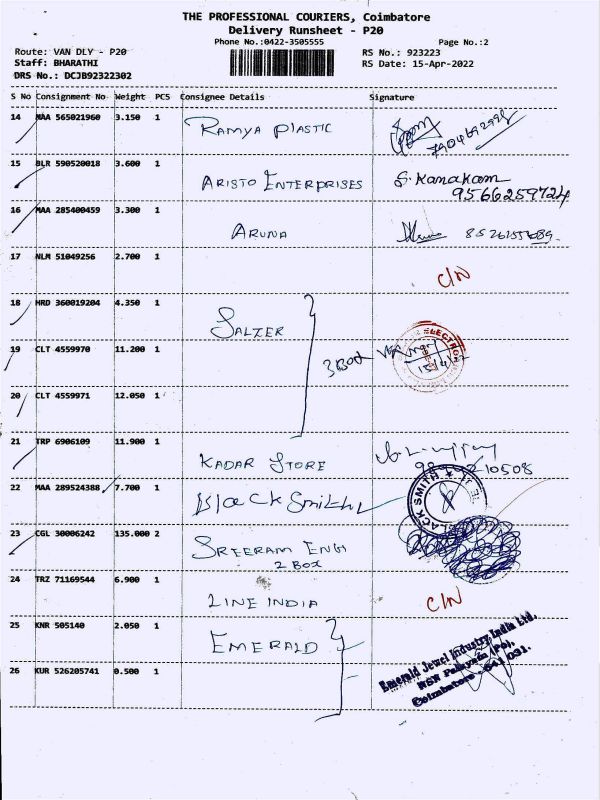 THE PROFESSIONAL COURIERS, Coimbatore
Delivery Runsheet - P20
Phone No.:0422-3505555
Page No.:2
Route: VAN DLY - P20
RS No.: 923223
Staff: BHARATHI
RS Date: 15-Apr-2022
DRS No.: DCJB92322302
S No Consignment No Weight PCS Consignee Details Signature
14 MAA 565021960 3.150 1 RAMYA PLASTIC
15 BLR 590520018 3.600 1 ARISTO ENTERPRISES S. Kanakam
9566259724
16 MAA 285400459 3.300 1 ARUNA
17 NLM 51049256 2.700 1 C/N
18 HRD 360019204 4.350 1 SALZER
19 CLT 4559970 11.200 1 3 Box
20 CLT 4559971 12.050 1
21 TRP 6906109 11.900 1 KADAR STORE
22 MAA 289524388 7.700 1 Black Smith
BLACK SMITH
23 CGL 30006242 135.000 2 SREERAM ENGI
2 BOX
24 TRZ 71169544 6.900 1 LINE INDIA C/N
25 KNR 505140 2.050 1 EMERALD
Emerald Jewel Industry India Ltd.
NSN Palayam (Po),
Coimbatore - 641 031.
26 KUR 526205741 0.500 1